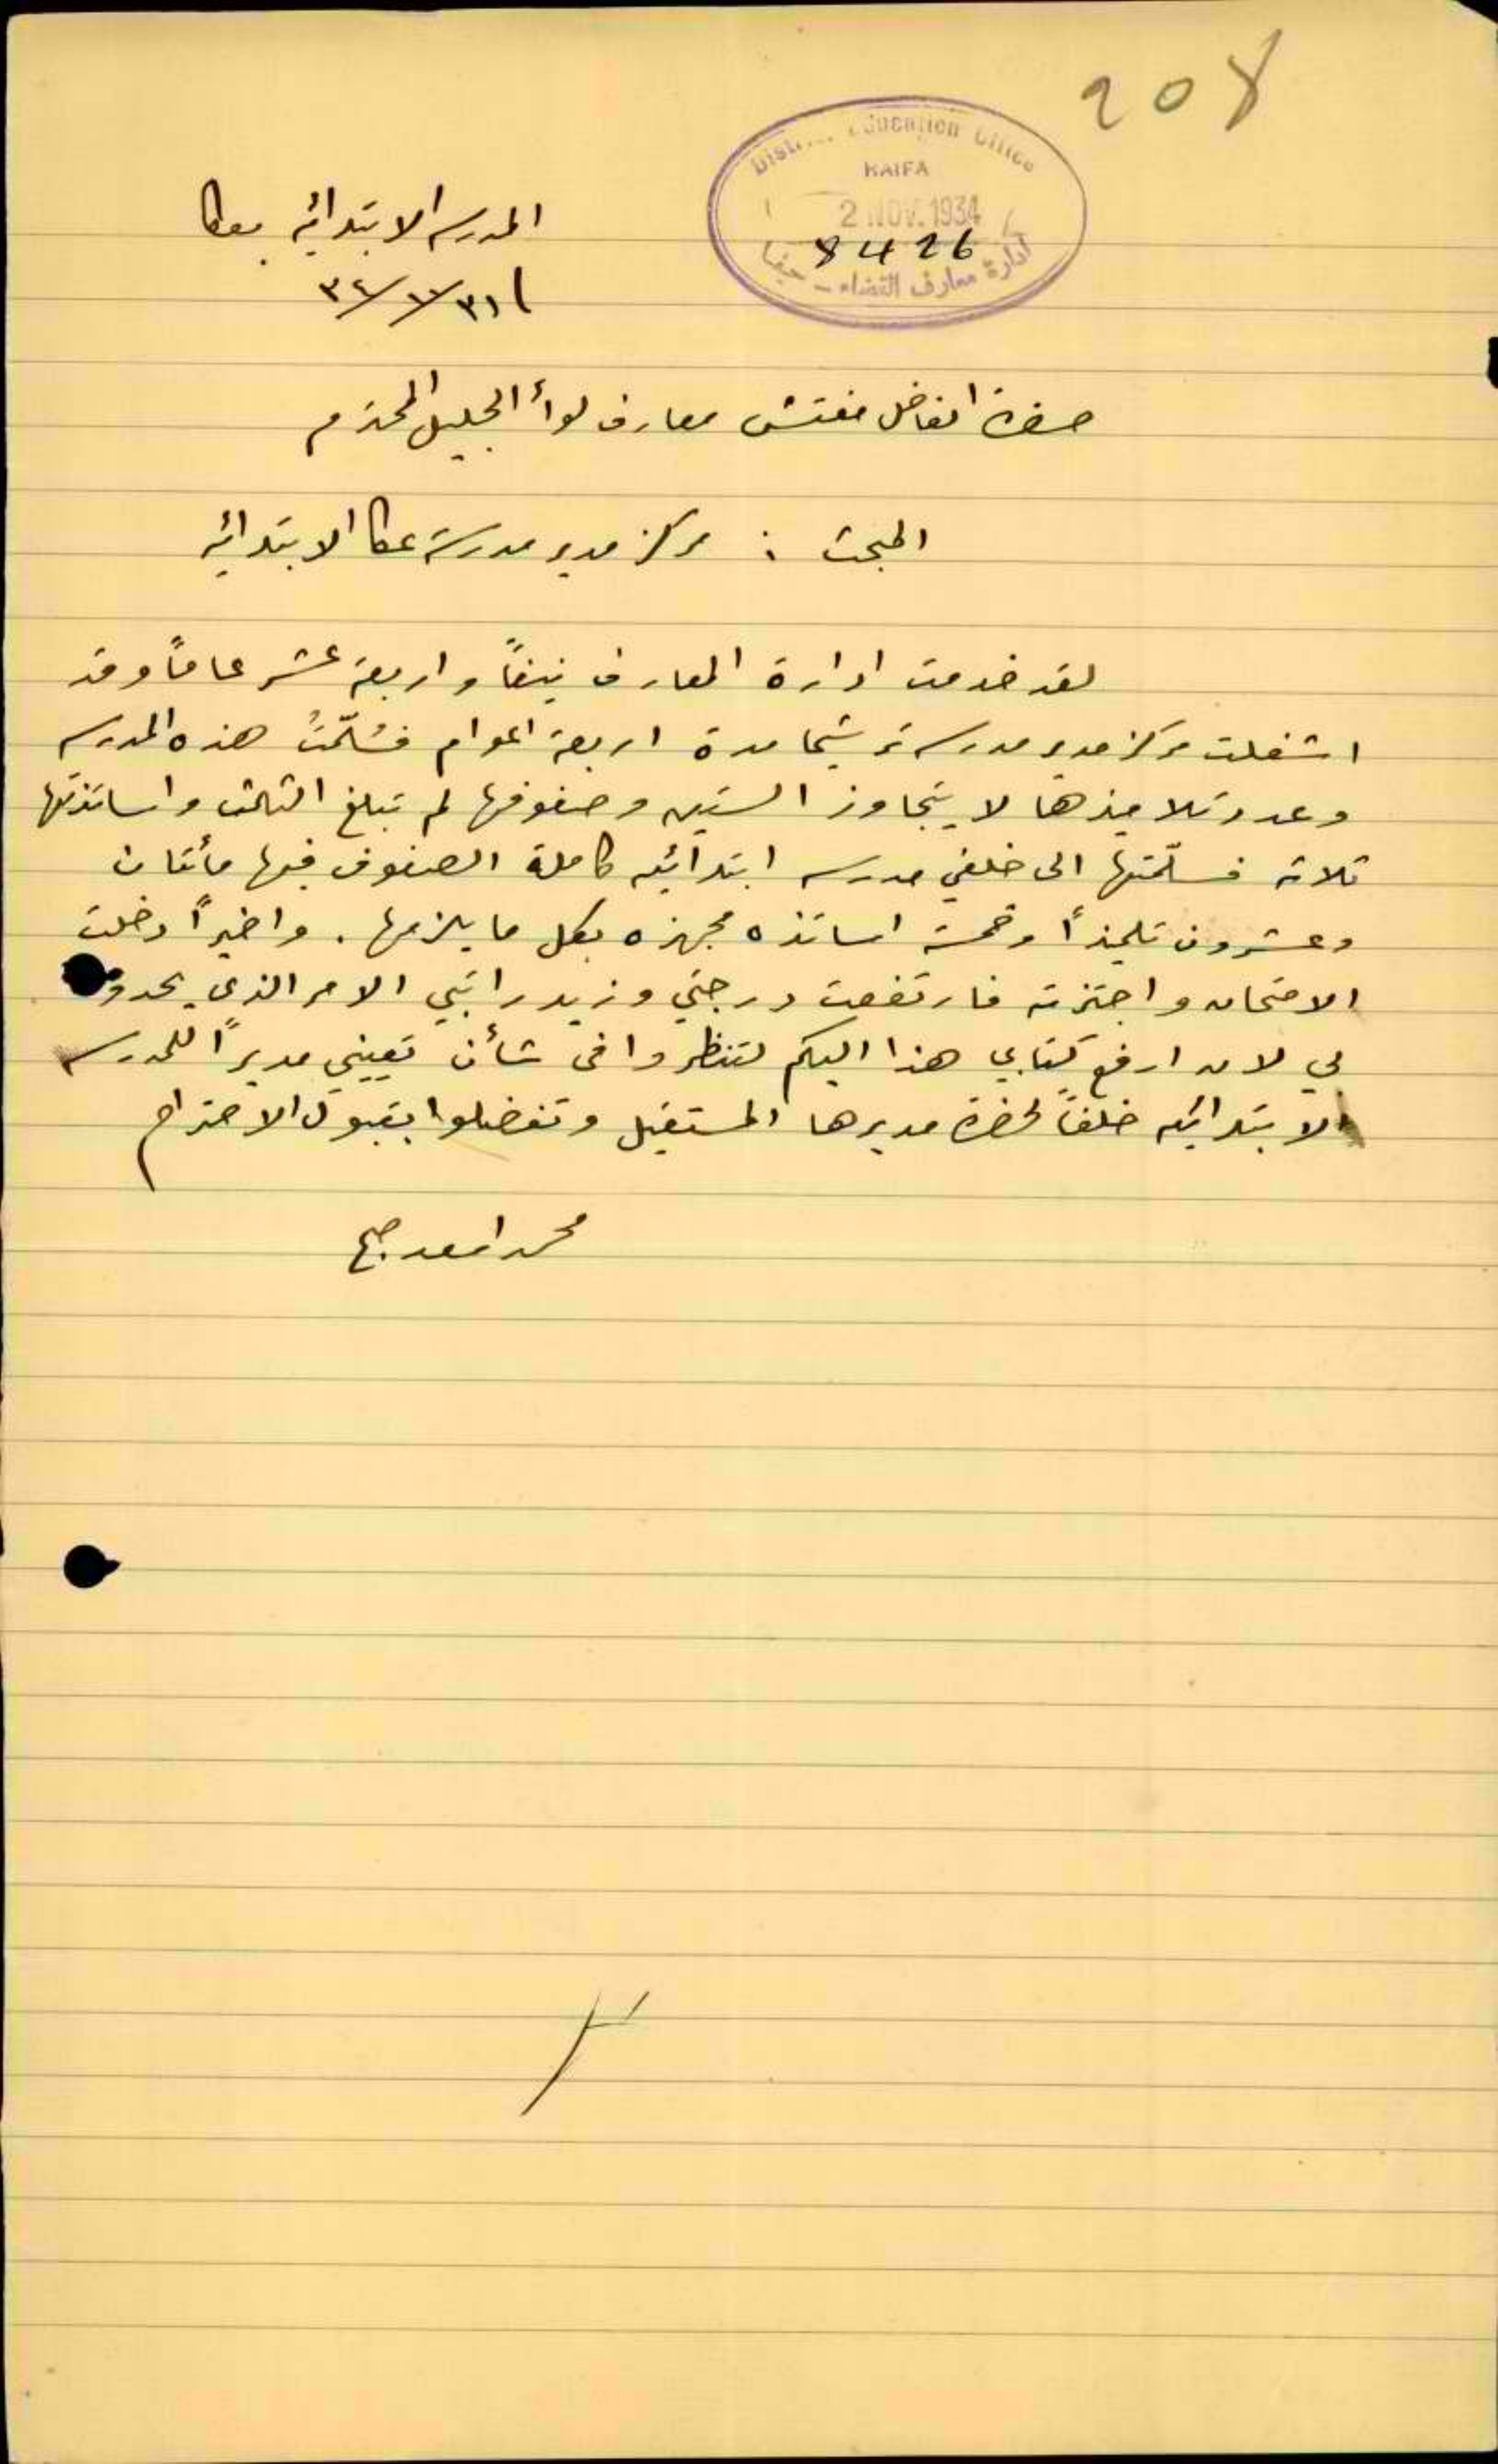 208
District Education Office
HAIFA
2 NOV. 1934
8426
ادارة معارف القضاء - حيفا
المدرسه الابتدائيه بعكا
حضرة الفاضل مفتش معارف لواء الجليل المحترم
المبحث : مركز مدير مدرسة عكا الابتدائيه
لقد خدمت ادارة المعارف نيفاً واربعة عشر عاماً وقد
اشغلت مركز مدير مدرسة ترشيحا مدة اربعة اعوام فسُلّمتُ هذه المدرسه
وعدد تلاميذها لا يتجاوز الستين وصفوفها لم تبلغ الثالث واساتذتها
ثلاثه فسلّمتها الى خلفي مدرسه ابتدائيه كاملة الصفوف فيها مأئتان
وعشرون تلميذاً وخمسة اساتذه مجهزه بكل ما يلزمها . واخيراً دخلت
الامتحان واجتزته فارتفعت درجتي وزيد راتبي الامر الذي يحدو
بي لان ارفع كتابي هذا اليكم لتنظروا في شأن تعييني مديراً للمدرسه
الابتدائيه خلفاً لحضرة مديرها المستقيل وتفضلوا بقبول الاحترام
محمد اسعد صبح